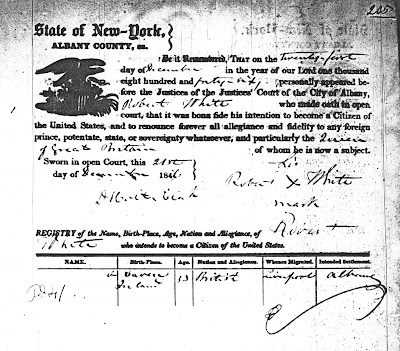 205
State of New-York,
ALBANY COUNTY, ss.
Be it Remembered, THAT on the twenty first
day of December in the year of our Lord one thousand
eight hundred and forty six, personally appeared be-
fore the Justices of the Justices' Court of the City of Albany,
Robert White who made oath in open
court, that it was bona fide his intention to become a Citizen of
the United States, and to renounce forever all allegiance and fidelity to any foreign
prince, potentate, state, or sovereignty whatsoever, and particularly the Queen
of Great Britain of whom he is now a subject.
Sworn in open Court, this 21st
day of December 1846
his
Robert X White
mark
Clerk
REGISTRY of the Name, Birth-Place, Age, Nation and Allegiance, of Robert
White who intends to become a Citizen of the United States.
NAME. Birth-Place. Age. Nation and Allegiance. Whence Migrated. Intended Settlement.
Ireland British Liverpool Albany